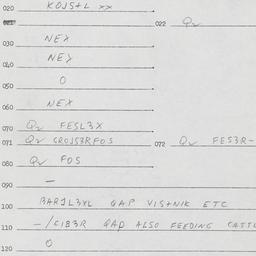 020 KOJS+L xx
021 022 Qv
030 NEX
040 NEX
050 O
060 NEX
070 Qv FESL3X
071 Qv CROJS3RFOS 072 Qv FES3R-
080 Qv FOS
090 —
100 BARJL3YL GAP VIS+NIK ETC
110 -/CIB3R GAP ALSO FEEDING CATTL
120 O